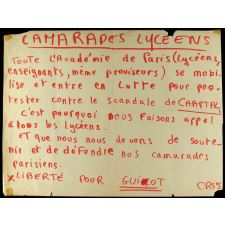 CAMARADES LYCÉENS
TOUTE L'Académie de Paris (Lycéens,
enseignants, même proviseurs) se mobi-
lise et entre en Lutte pour pro-
tester contre le scandale de CHAPTAL.
c'est pourquoi nous faisons appel
à tous les lycéens.
ET que nous nous devons de soute-
nir et de défendre nos camarades
parisiens.
LIBERTÉ POUR GUIOT